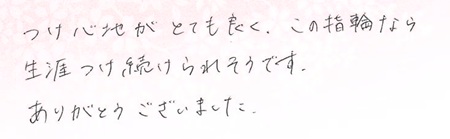 つけ心地がとても良く、この指輪なら
生涯つけ続けられそうです。
ありがとうございました。